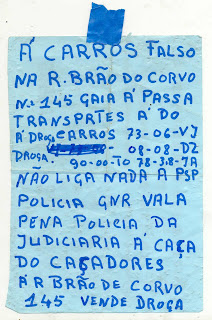 Á CARROS FALSO
NA R. BRÃO DO CORVO
Nº 145 GAIA Á PASSA
TRANSPRTES Á DO
Á DROGA CARROS 73-06-VJ
DROGA. - 08-08-DZ
90-00-TO 78-38-7A
NÃO LIGA NADA A PSP
POLICIA GNR VALA
PENA POLICIA DA
JUDICIARIA Á CAÇA
DO CAÇADORES
Á R BRÃO DE CORVO
145 VENDE DROGA